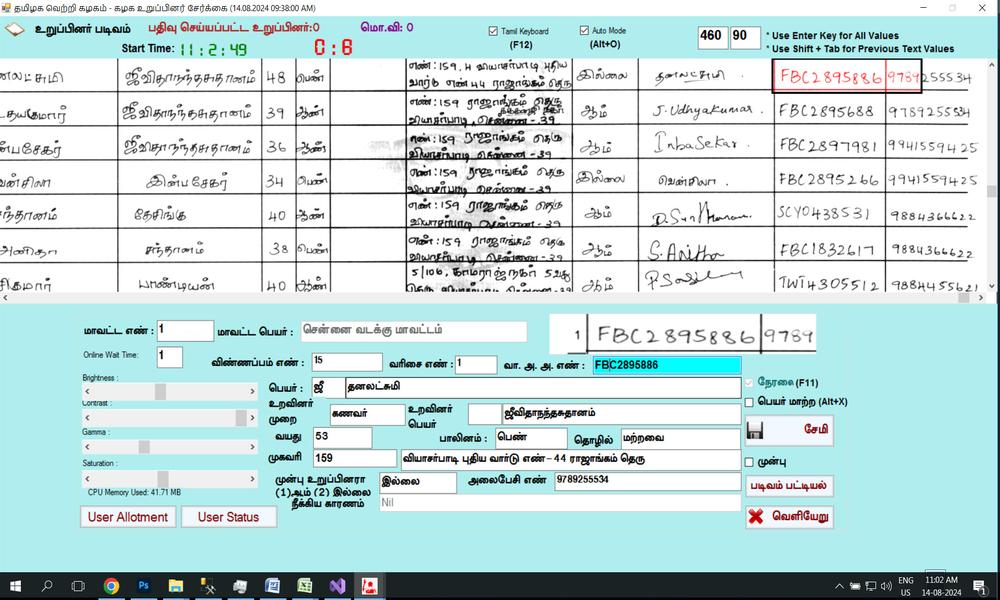 தமிழக வெற்றி கழகம் - கழக உறுப்பினர் சேர்க்கை (14.08.2024 09:38:00 AM)
உறுப்பினர் படிவம் பதிவு செய்யப்பட்ட உறுப்பினர்:0 மொ.வி: 0
Tamil Keyboard (F12) Auto Mode (Alt+O)
460 90
* Use Enter Key for All Values
* Use Shift + Tab for Previous Text Values
Start Time: 11:2:49 0:6
னலட்சுமி ஜீவிதாநந்தசுதானம் 48 பெண் எண்: 159, 4 வியாசர்பாடி புதிய வார்டு எண் 44 ராஜாங்கம் தெரு இல்லை தனலட்சுமி FBC2895886 9789255534
தயகுமார் ஜீவிதாநந்தசுதானம் 39 ஆண் எண்: 159 ராஜாங்கம் தெரு வியாசர்பாடி சென்னை - 39 ஆம் J. Udhyakumar. FBC2895688 9789255534
ன்பசேகர் ஜீவிதாநந்தசுதானம் 36 ஆண் எண்: 159 ராஜாங்கம் தெரு வியாசர்பாடி சென்னை - 39 ஆம் InbaSekar. FBC2897981 9941559425
வன்சிலா இன்பசேகர் 34 பெண் எண்: 159 ராஜாங்கம் தெரு வியாசர்பாடி சென்னை - 39 இல்லை வென்சிலா FBC2895266 9941559425
ந்தானம் தேசிங்கு 40 ஆண் எண்: 159 ராஜாங்கம் தெரு வியாசர்பாடி சென்னை - 39 ஆம் SCY0438531 9884366622
அனிதா சந்தானம் 38 பெண் எண்: 159 ராஜாங்கம் தெரு வியாசர்பாடி சென்னை - 39 ஆம் S. Anitha FBC1832617 9884366622
சிகுமார் பாண்டியன் 40 ஆண் 5/106, காமராஜ் நகர் 5வது தெரு ஆம் TWT4305512 9884455621
மாவட்ட எண் : 1 மாவட்ட பெயர் : சென்னை வடக்கு மாவட்டம் 1 FBC2895886 9789
Online Wait Time: 1
விண்ணப்பம் எண் : 15 வரிசை எண் : 1 வா. அ. அ. எண் : FBC2895886
Brightness :
பெயர் : ஜீ தனலட்சுமி நேரலை (F11)
Contrast :
உறவினர் முறை கணவர் உறவினர் பெயர் ஜீவிதாநந்தசுதானம் பெயர் மாற்ற (Alt+X)
Gamma :
வயது 53 பாலினம் : பெண் தொழில் மற்றவை சேமி
Saturation :
முகவரி 159 வியாசர்பாடி புதிய வார்டு எண்- 44 ராஜாங்கம் தெரு முன்பு
முன்பு உறுப்பினரா (1)ஆம் (2) இல்லை இல்லை அலைபேசி எண் 9789255534 படிவம் பட்டியல்
CPU Memory Used: 41.71 MB
நீக்கிய காரணம் Nil
User Allotment User Status வெளியேறு
ENG US 11:02 AM 14-08-2024 1